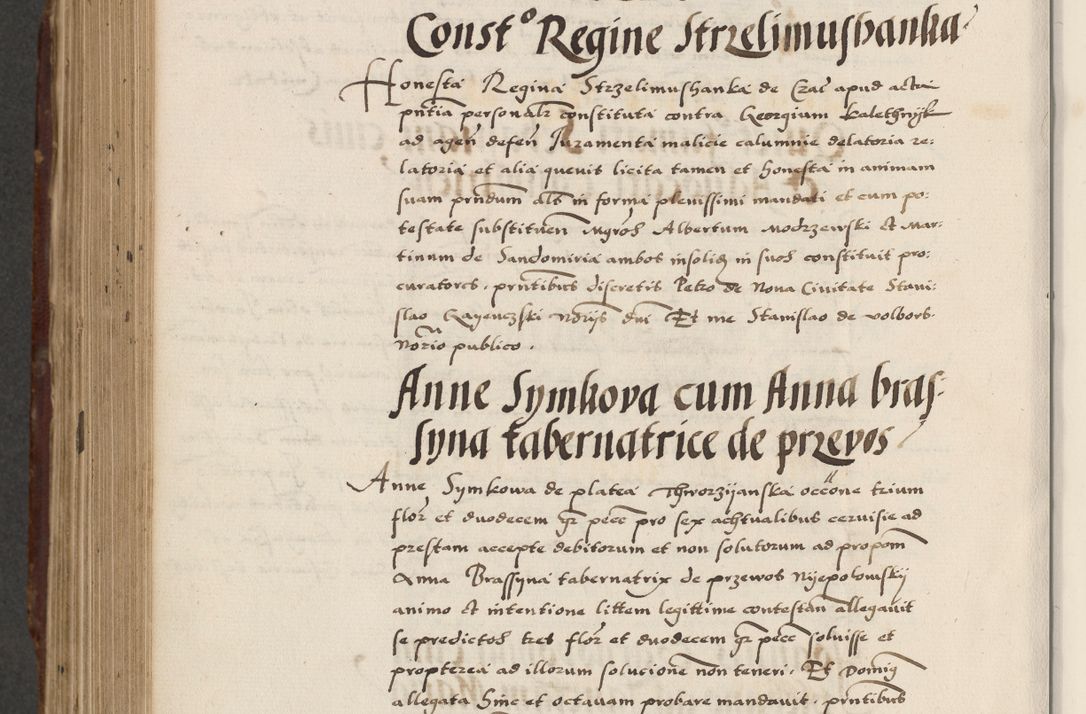 Constº Regine Strzelimushanka
Honesta Regina Strzelimushanka de Crac apud acta
pntia personalr constituta contra Georgium Kalethnyk
ad agen defen Juramenta malicie calumnie delatoria re:
latoria et alia quevis licita tamen et honesta in animam
suam prndum als in forma plenissimi mandati et cum po:
testate substituen Mgros Albertum Modrzewski et Mar:
tinum de Sandomiria ambos insolid in suos constituit pro:
curatores, prntibus discretis Petro de Nova Civitate Stani:
slao notriis dni Et me Stanislao de Volbors
Notrio publico .
Anne Symkova cum Anna bras:
syna tabernatrice de przevos
Anne Symkowa de platea occone trium
flor et duodecem gr pecc pro sex achtualibus cervisie ad
prestam accepte debitorum et non solutorum ad propom
Anna Brassyna tabernatrix de przewos Nyepolomskij
animo et intentione littem legittime contestan allegavit
se predictos tres flor et duodecem gr pecc solvisse et
propterea ad illorum solucione non teneri. Et Domig
allegata hinc et octavam probare mandavit . prntibus